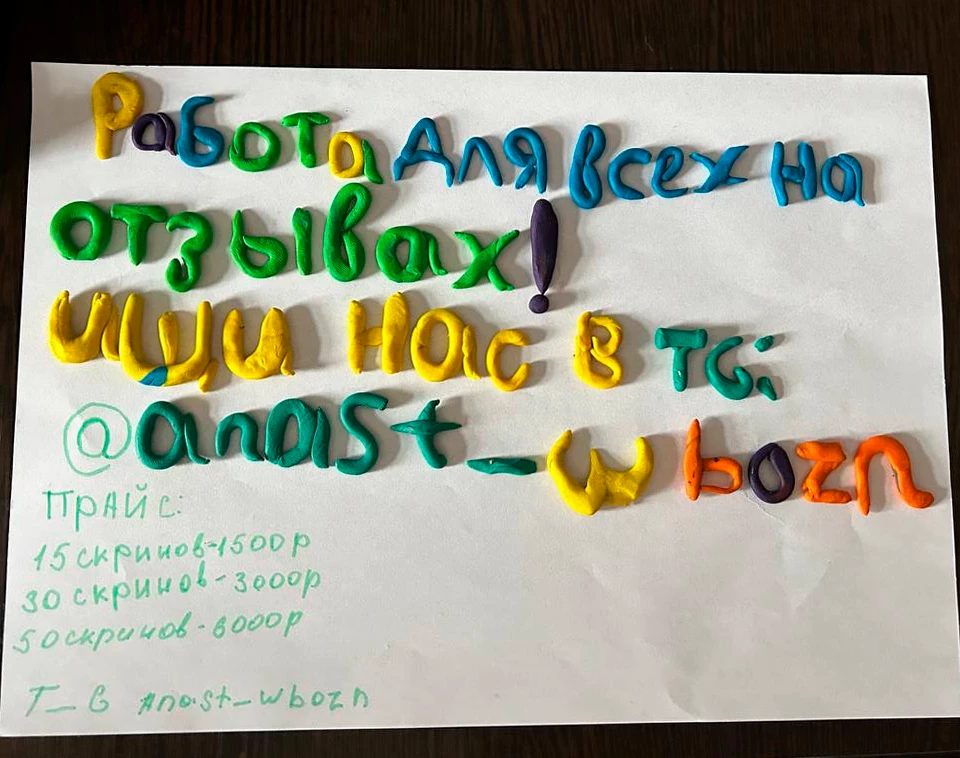 Работа для всех на
отзывах!
ищи нас в тг:
@anast_wbozn
ПРАЙС:
15 скринов-1500р
30 скринов-3000р
50 скринов-6000р
Т_G Anast_wbozn